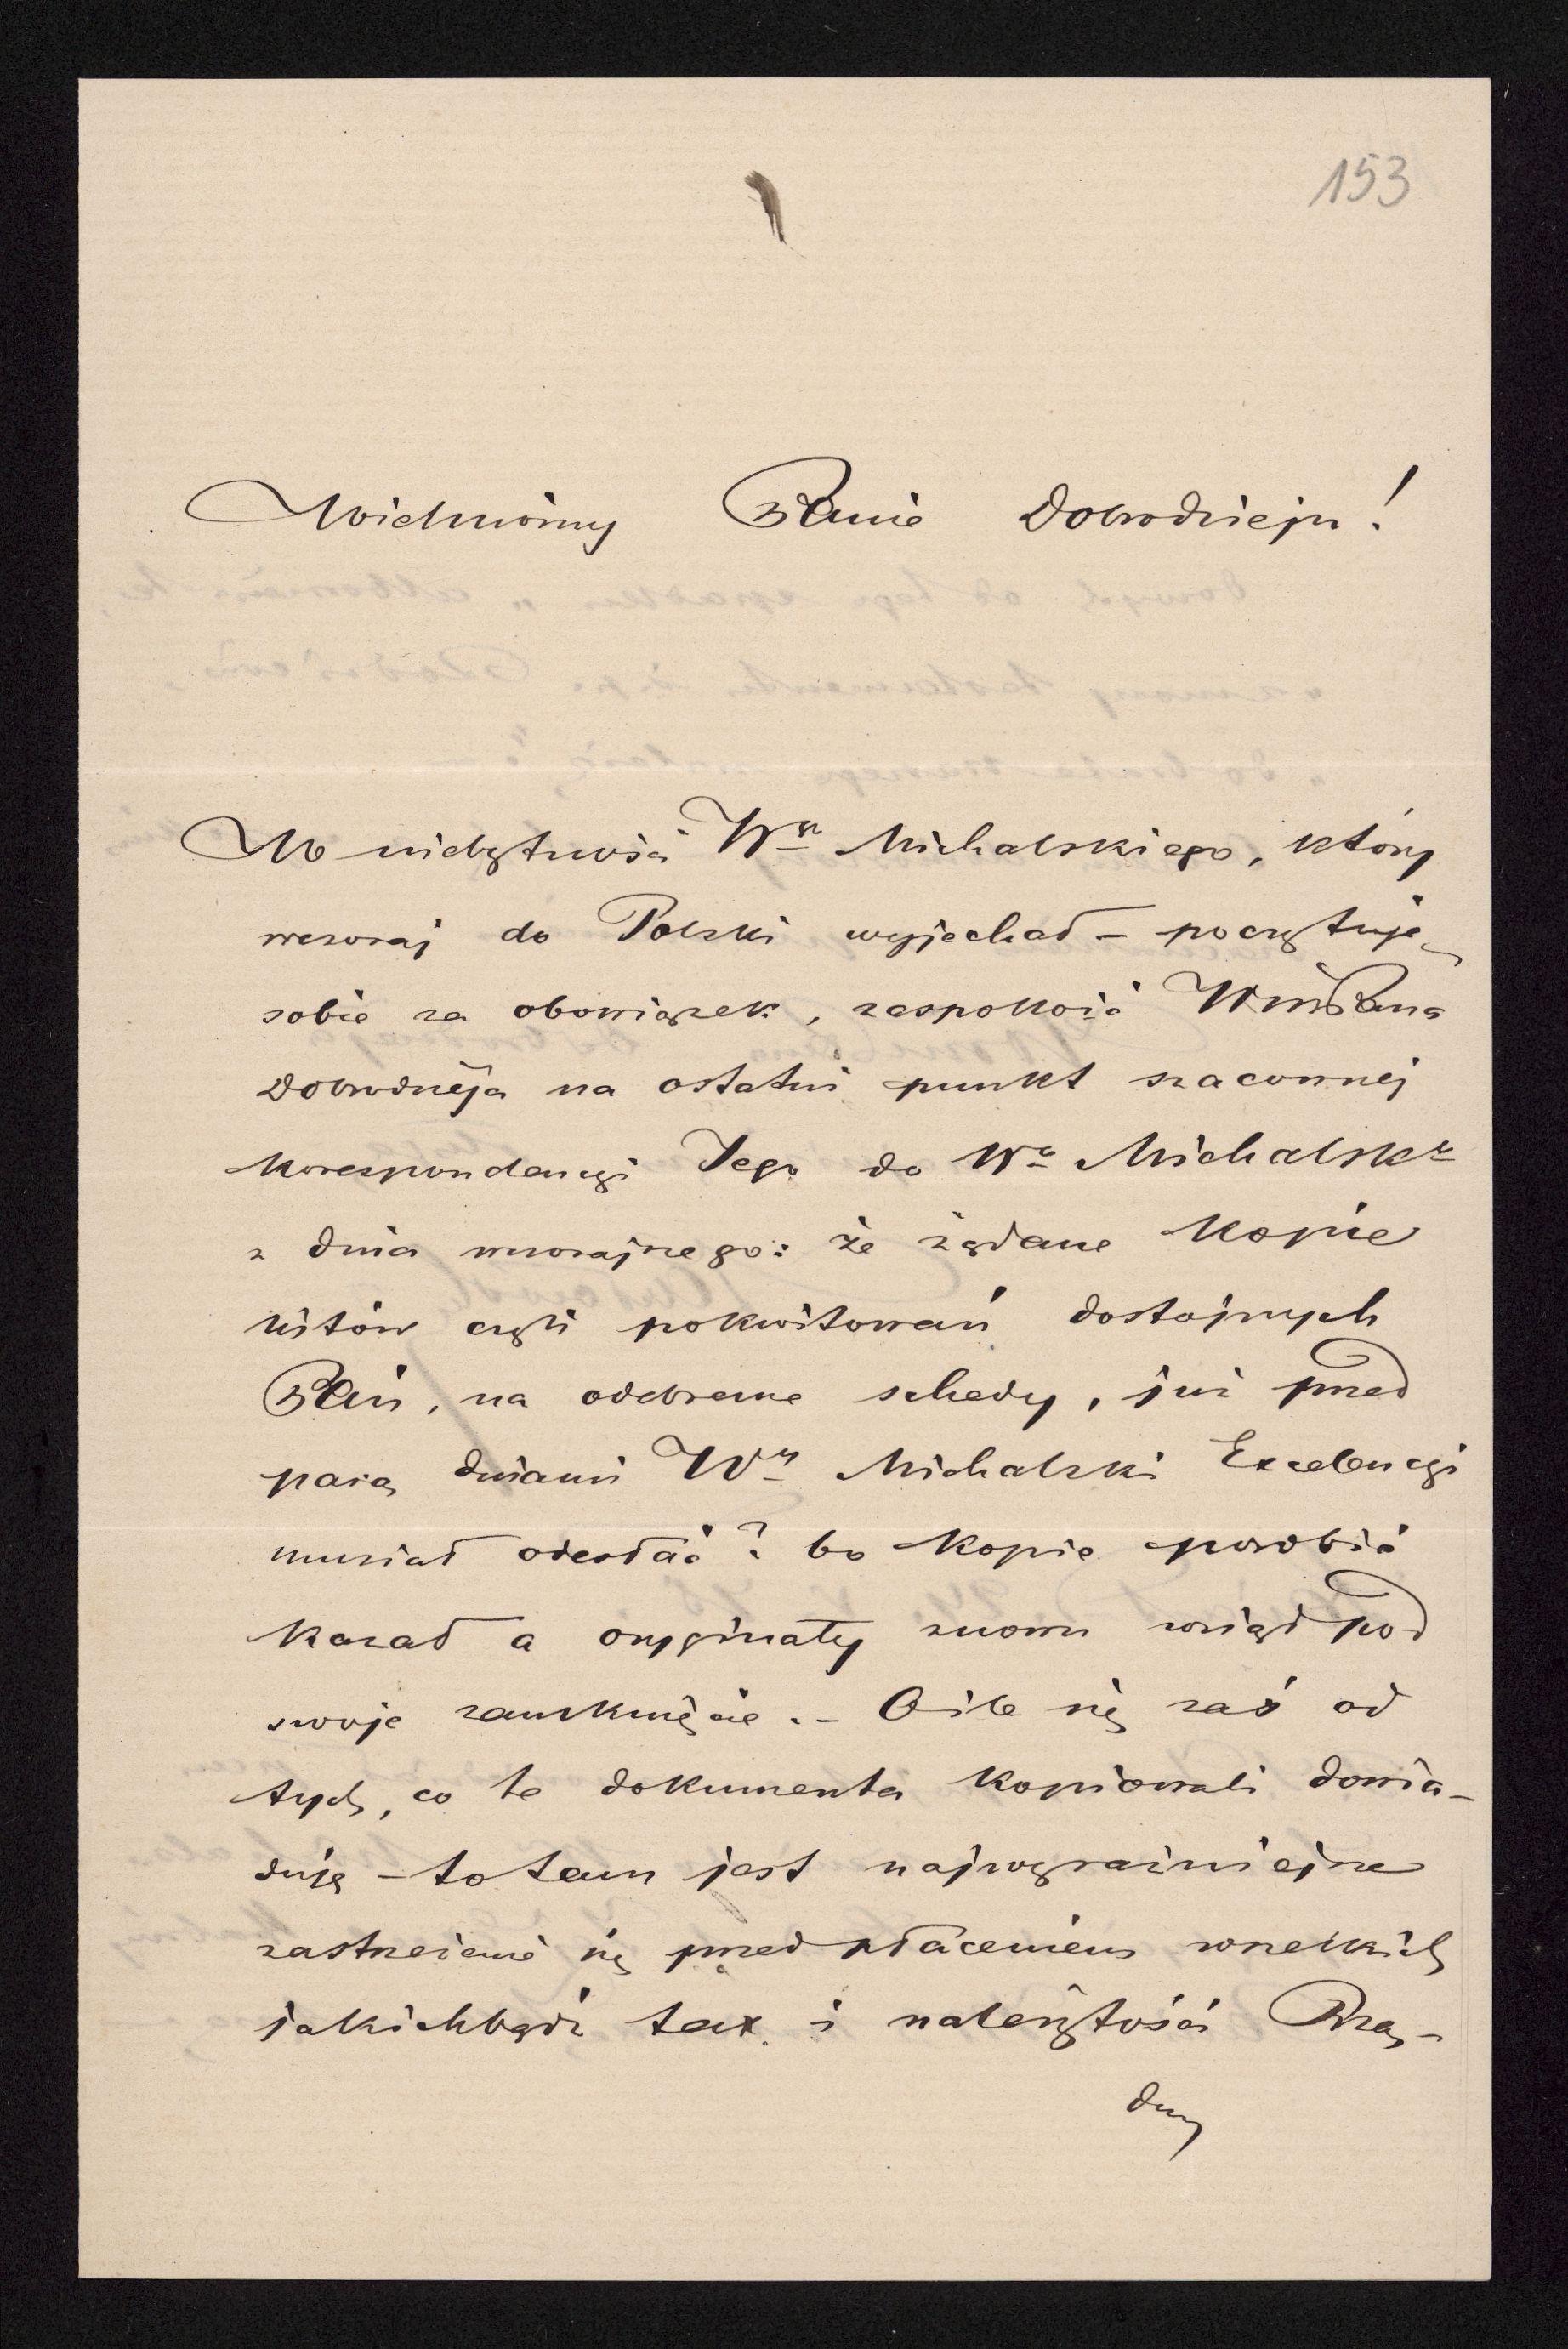 153
Wielmożny Panie Dobrodzieju!
W niebytności Wgo Michalskiego, który
wczoraj do Polski wyjechał – poczytuję
sobie za obowiązek, zaspokoić WmPana
Dobrodzieja na ostatni punkt szacownej
korespondencyi Jego do Wo Michalsko
z dnia wczorajszego: że żądane kopie
listów czyli pokwitowań dostojnych
Pań, na odebrane schedy, już przed
parą dniami Wy Michalski Excelencyi
musiał odesłać? bo kopie porobić
kazał a oryginały znowu wziął pod
swoje zamknięcie. – O ile się zaś od
tych, co te dokumenta kopiowali dowia-
duję – to tam jest najwyraźniejsze
zastrzeżenie się przed płaceniem wszelkich
jakichbądź tax i należytości Rzą-
dwy